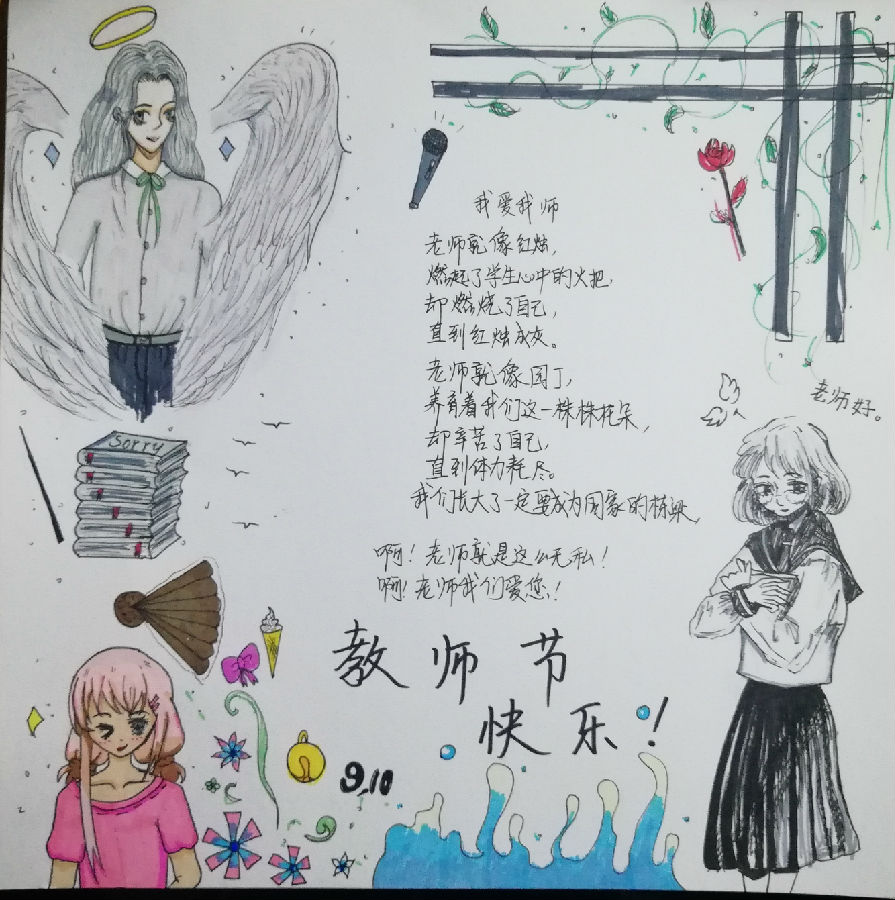 Sorry
我爱我师
老师就像红烛，
燃起了学生心中的火把，
却燃烧了自己，
直到红烛成灰。
老师就像园丁，
养育着我们这一株株花朵，
却辛苦了自己，
直到体力耗尽。
我们长大了一定要成为国家的栋梁，
啊！老师就是这么无私！
啊！老师我们爱您！
老师好。
教师节
快乐！
9.10